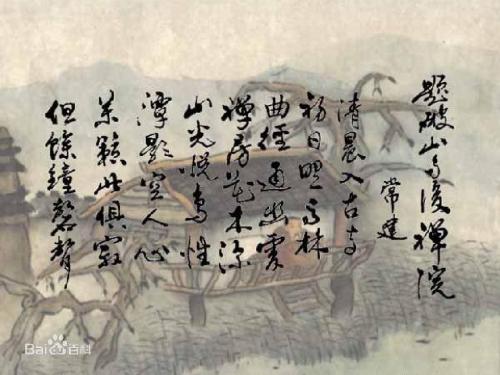 題破山寺後禪院
常建
清晨入古寺
初日照高林
曲徑通幽處
禪房花木深
山光悅鳥性
潭影空人心
萬籟此俱寂
但餘鐘磬聲
Bai百科